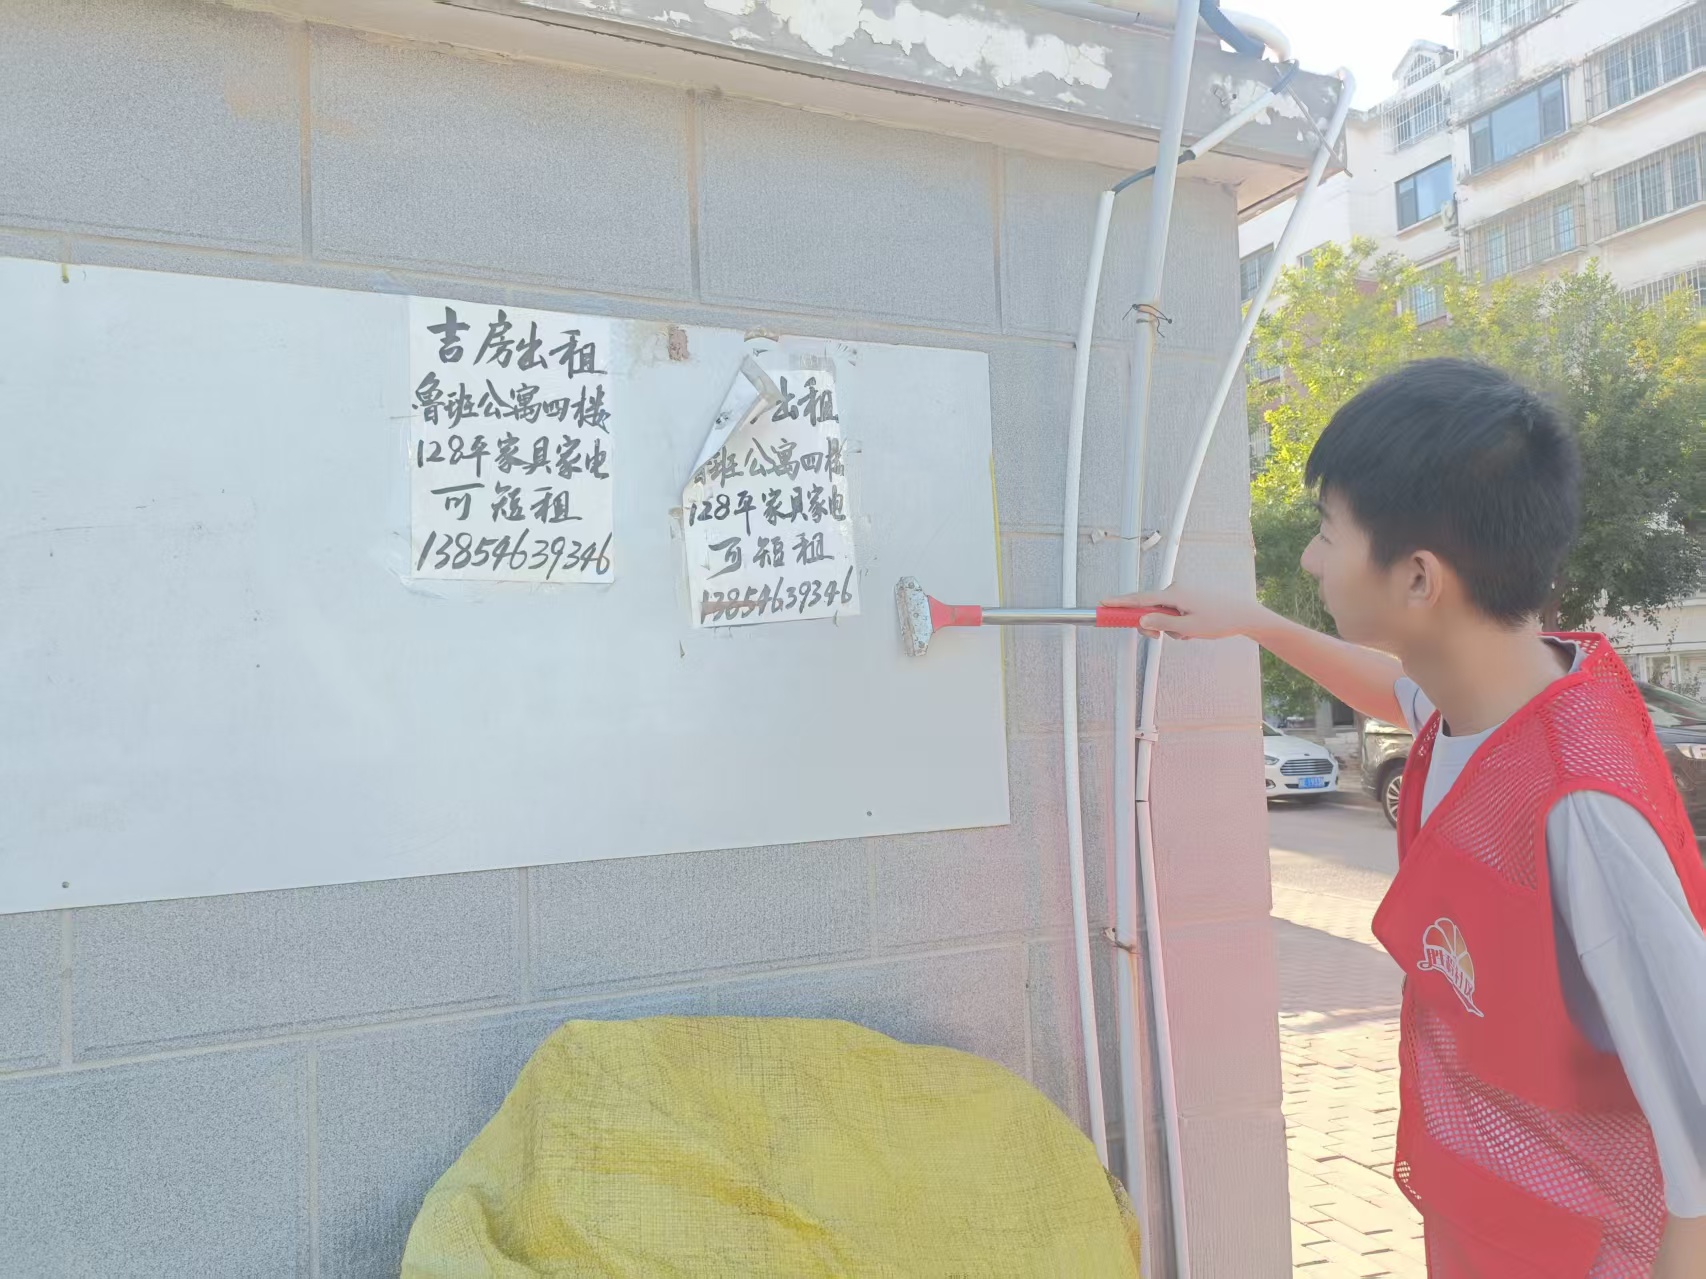 吉房出租
鲁班公寓四楼
128平家具家电
可短租
13854639346
出租
班公寓四楼
128平家具家电
可短租
13854639346